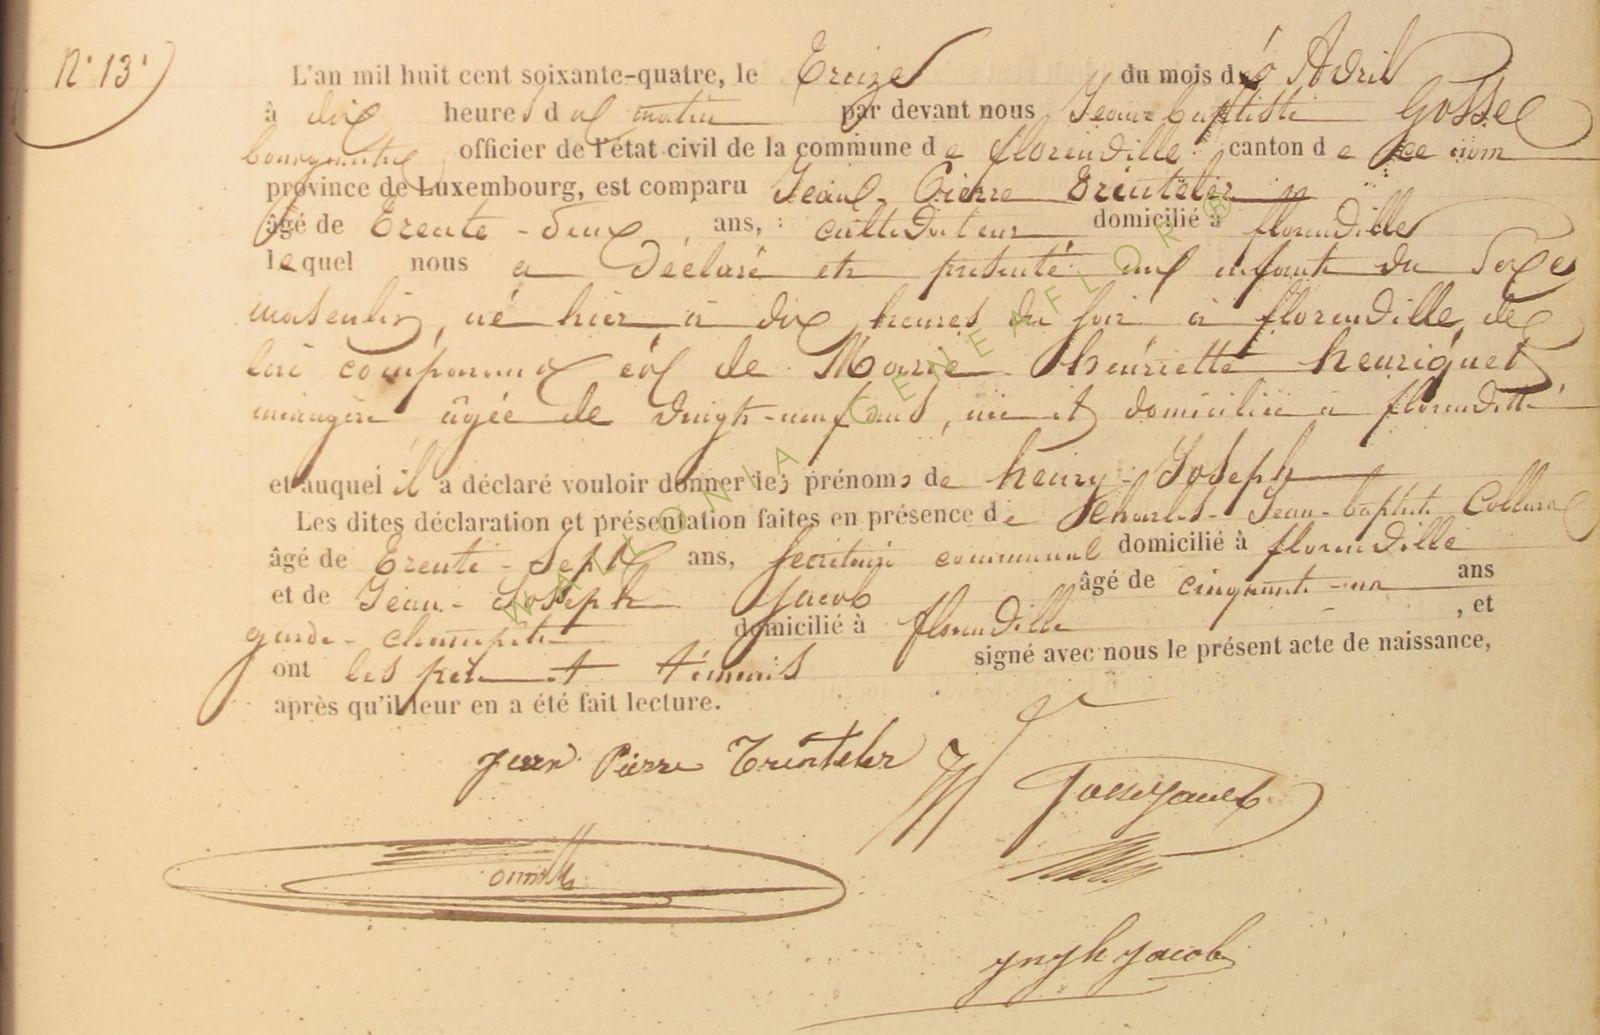 N° 13
L'an mil huit cent soixante-quatre, le Treize du mois d'Avril
à dix heures du matin par devant nous Jean-baptiste Gosse
bourgmestre officier de l'état civil de la commune de florenville canton de ce nom
province de Luxembourg, est comparu Jean-Pierre Trinteler
âgé de Trente-deux ans, cultivateur domicilié à florenville
lequel nous a déclaré et présenté un enfant du sexe
masculin, né hier à dix heures du soir à florenville, de
lui comparant et de Marie henriette henriquet
ménagère âgée de vingt-neuf ans, née et domiciliée à florenville
et auquel il a déclaré vouloir donner les prénoms de henry-Joseph
Les dites déclaration et présentation faites en présence de Charles-Jean-baptiste
âgé de Trente-sept ans, secrétaire communal domicilié à florenville
et de Jean-Joseph Jacob âgé de cinquante-un ans
garde-champêtre domicilié à florenville, et
ont les père et témoins signé avec nous le présent acte de naissance,
après qu'il leur en a été fait lecture.
Jean Pierre Trinteler
Jacob
MALLONIA GENEAFLOR